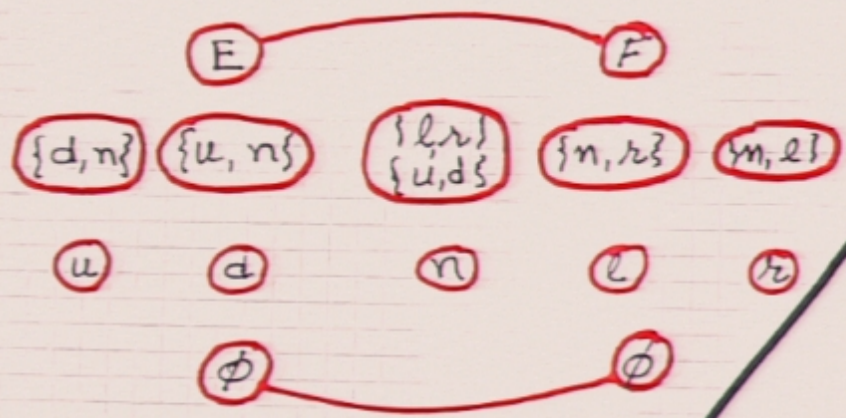 E F
{d,n} {u, n} {l,r} {n,r} {n,l}
{u,d}
u d n l r
ϕ ϕ